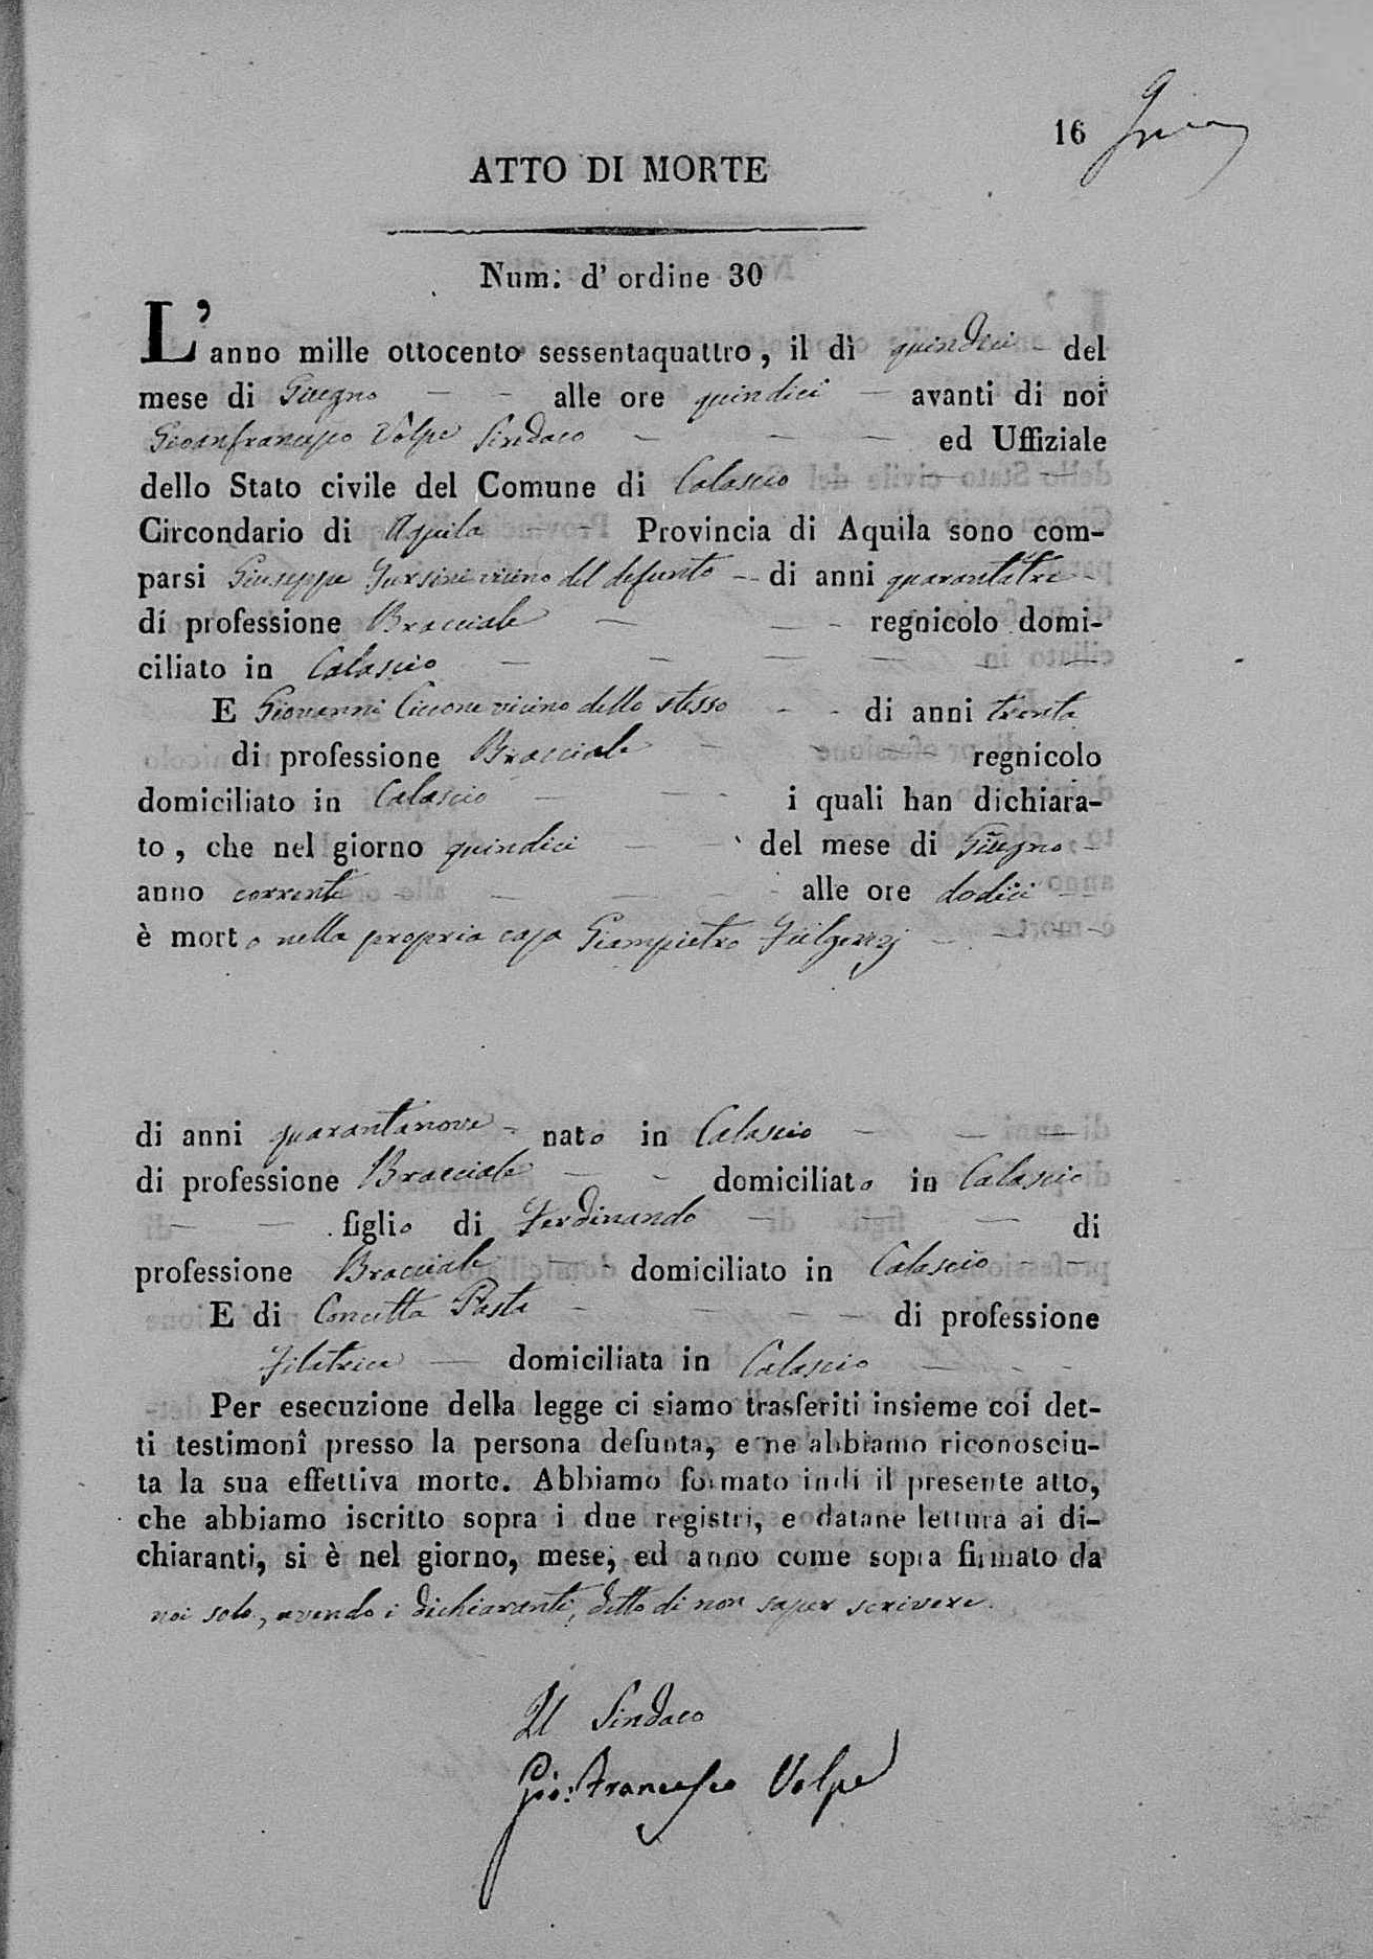 16
ATTO DI MORTE
Num. d' ordine 30
L'anno mille ottocento sessentaquattro, il dì quindici del
mese di Giugno alle ore quindici avanti di noi
Gioanfrancesco Volpe Sindaco ed Uffiziale
dello Stato civile del Comune di Calascio
Circondario di Aquila Provincia di Aquila sono com-
parsi Giuseppe vicino del defunto di anni quarantatre
di professione Bracciale regnicolo domi-
ciliato in Calascio
E Giovanni Ciccone vicino dello stesso di anni trenta
di professione Bracciale regnicolo
domiciliato in Calascio i quali han dichiara-
to, che nel giorno quindici del mese di Giugno
anno corrente alle ore dodici
è morto nella propria casa Giampietro Fulgenzj
di anni quarantanove nato in Calascio
di professione Bracciale domiciliato in Calascio
figlio di Ferdinando di
professione Bracciale domiciliato in Calascio
E di Concetta Pasta di professione
Filatrice domiciliata in Calascio
Per esecuzione della legge ci siamo trasferiti insieme coi det-
ti testimonî presso la persona defunta, e ne abbiamo riconosciu-
ta la sua effettiva morte. Abbiamo formato indi il presente atto,
che abbiamo iscritto sopra i due registri, e datane lettura ai di-
chiaranti, si è nel giorno, mese, ed anno come sopra firmato da
noi solo, avendo i dichiaranti, detto di non saper scrivere.
Il Sindaco
Gio: Francesco Volpe